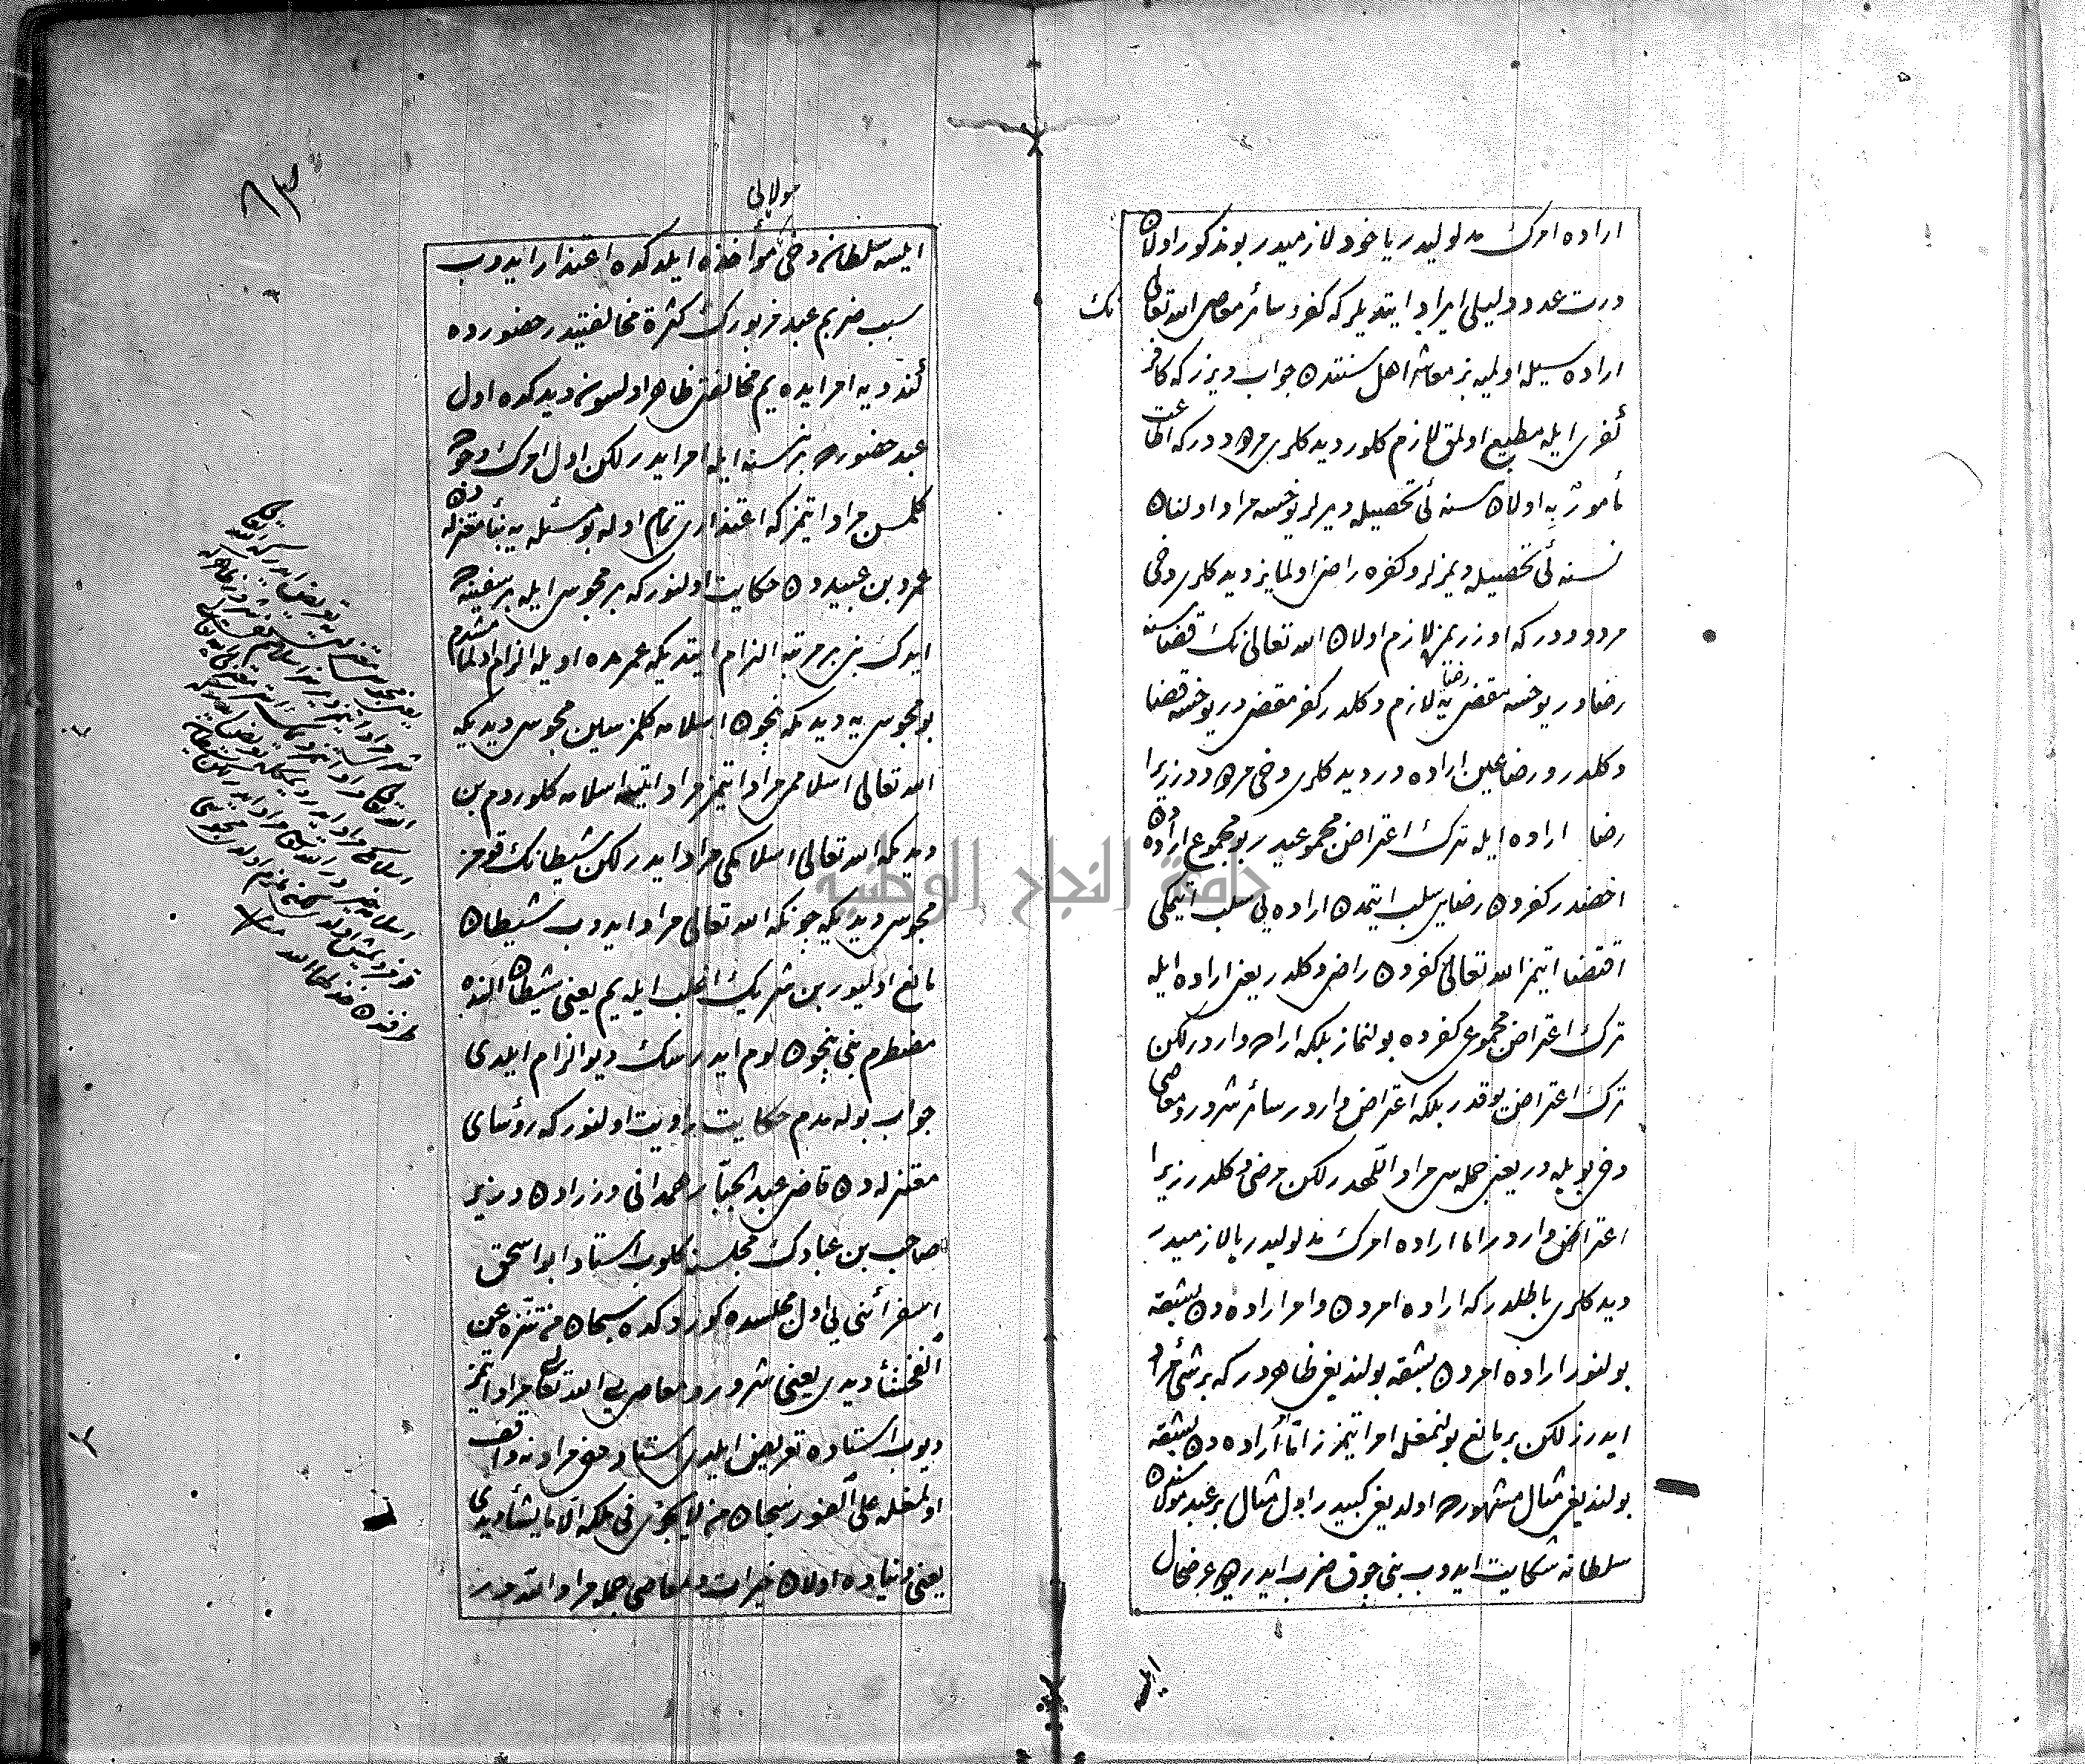 اراده امرك مدلوليدر ياخود لازميدر بو مذكور اولان
درت عدد دليلى ايراد ايتديلر كه كفر و سائر معاصى الله تعالى نك
اراده سيله اولميه بز معاشر اهل سنتدن جواب ويرز كه كافر
كفرى ايله مطيع اولمق لازم كلور ديدكلرى مردوددر كه اطاعت
مأمور به اولان نسنه ئى تحصيله ديرلر يوخسه مراد اولنان
نسنه ئى تحصيله ديمزلر و كفره راضى اولمايز ديدكلرى دخى
مردوددر كه اوزريمزه لازم اولان الله تعالى نك قضاسنه
رضادر يوخسه مقضى يه رضا لازم دكلدر كفر مقضى در يوخسه قضا
دكلدر و رضا عين اراده در ديدكلرى دخى مردوددر زيرا
رضا اراده ايله ترك اعتراض مجموعيدر بو مجموع اراده دن
اخصدر كفردن رضايى سلب ايتمدن اراده يى سلب ايتمكى
اقتضا ايتمز الله تعالى كفردن راضى دكلدر يعنى اراده ايله
ترك اعتراض مجموعى كفرده بولنماز بلكه اراده واردر لكن
ترك اعتراض يوقدر بلكه اعتراض واردر سائر شرور و معاصى
دخى بويله در يعنى جمله سى مراد اللهدر لكن مرضى دكلدر زيرا
اعتراض واردر اما اراده امرك مدلوليدر يا لازميدر
ديدكلرى باطلدر كه اراده امردن و امر اراده دن بشقه
بولنور اراده امردن بشقه بولنديغى ظاهردر كه بر شئ مراد
ايدرز لكن بر مانع بولنمغله امر ايتمزز اما امر اراده دن بشقه
بولنديغى مثال مشهورده اولديغى كبيدر اول مثال بر عبد مولاسندن
سلطانه شكايت ايدوب بنى چوق ضرب ايدر ديو عرضحال
ايلسه
مولايى
ايلسه سلطان دخى مؤاخذه ايلدكده اعتذار ايدوب
سبب ضربم عبد مزبورك كثرة مخالفتيدر حضورده
ئنده يه امر ايده يم مخالفتى ظاهر اولسون ديدكده اول
عبد حضورده بر نسنه ايله امر ايدر لكن اول امرك وجوده
كلمسن مراد ايتمز كه اعتذارى تمام اوله بو مسئله يه بناء معتزله دن
عمرو بن عبيددن حكايت اولنور كه بر مجوسى ايله بر سفينه ده
ايدك بنى بر مرتبه الزام ايتديكه عمرمده اويله الزام اولمامشدم
بو مجوسى يه ديدمكه نيچون اسلامه كلمزسين مجوسى ديديكه
الله تعالى اسلاممى مراد ايتمز مراد ايتسه اسلامه كلوردم بن
ديدمكه الله تعالى اسلامكى مراد ايدر لكن شيطانك قومز
مجوسى ديديكه چونكه الله تعالى مراد ايدوب شيطان
مانع اوليور بن شريك اغلب ايله يم يعنى شيطان النده
مضطرم بنى نيچون لوم ايدرسك ديو الزام ايلدى
جواب بوله مدم حكايت روايت اولنور كه رؤساى
معتزله دن قاضى عبد الجبار همدانى وزرادن وزير
صاحب بن عبادك مجلسنه كلوب استاد ابو اسحق
اسفرائنى يى اول مجلسده كوردكده سبحان من تنزه عن
الفحشاء ديدى يعنى شرور و معاصى يى الله تعالى مراد ايتمز
ديوب استاده تعريض ايلدى استاد دخى مرادنه واقف
اولمغله على الفور سبحان من لا يجرى فى ملكه الا ما يشاء ديدى
يعنى دنياده اولان خيرات و معاصى جمله مراد الله در